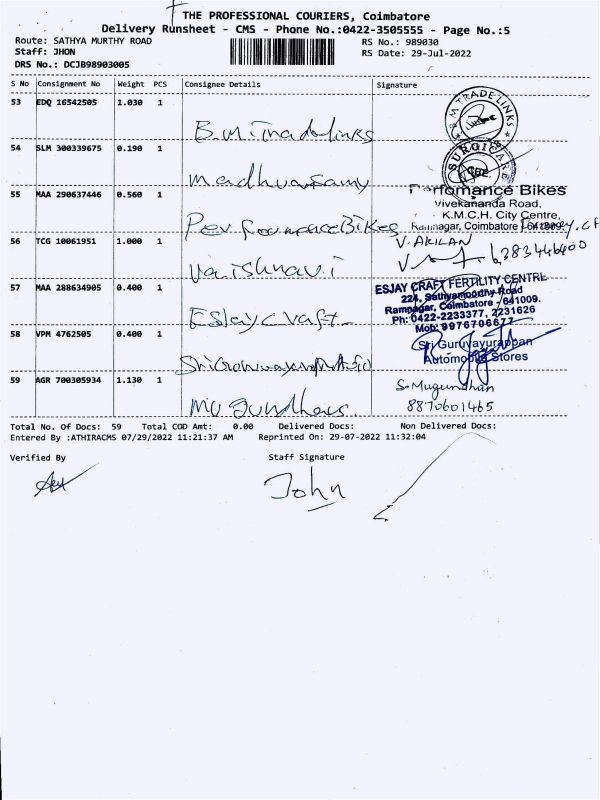 THE PROFESSIONAL COURIERS, Coimbatore
Delivery Runsheet - CMS - Phone No.:0422-3505555 - Page No.:5
Route: SATHYA MURTHY ROAD
RS No.: 989030
Staff: JHON
RS Date: 29-Jul-2022
DRS No.: DCJB98903005
S No Consignment No Weight PCS Consignee Details Signature
53 EDQ 16542505 1.030 1
B.M. Tradelinks
M TRADE LINKS
54 SLM 300339675 0.190 1
Madhuasamy
SURGICARE
55 MAA 290637446 0.560 1
Performance Bikes
Perfomance Bikes
Vivekananda Road,
K.M.C.H. City Centre,
Ramnagar, Coimbatore - 641009.
56 TCG 10061951 1.000 1
Vaishnavi
V. AKILAN
57 MAA 288634905 0.400 1
Esjay craft
ESJAY CRAFT FERTILITY CENTRE
224, Sathyamoorthy Road
Ramnagar, Coimbatore - 641009.
Ph: 0422-2233377, 2231626
Mob: 9976706677
58 VPM 4762505 0.400 1
Sri Guruvayurappan
Automobile Stores
59 AGR 700305934 1.130 1
Mugundhan
S. Mugundhan
8870601465
Total No. Of Docs: 59 Total COD Amt: 0.00 Delivered Docs: Non Delivered Docs:
Entered By :ATHIRACMS 07/29/2022 11:21:37 AM Reprinted On: 29-07-2022 11:32:04
Verified By Staff Signature
John